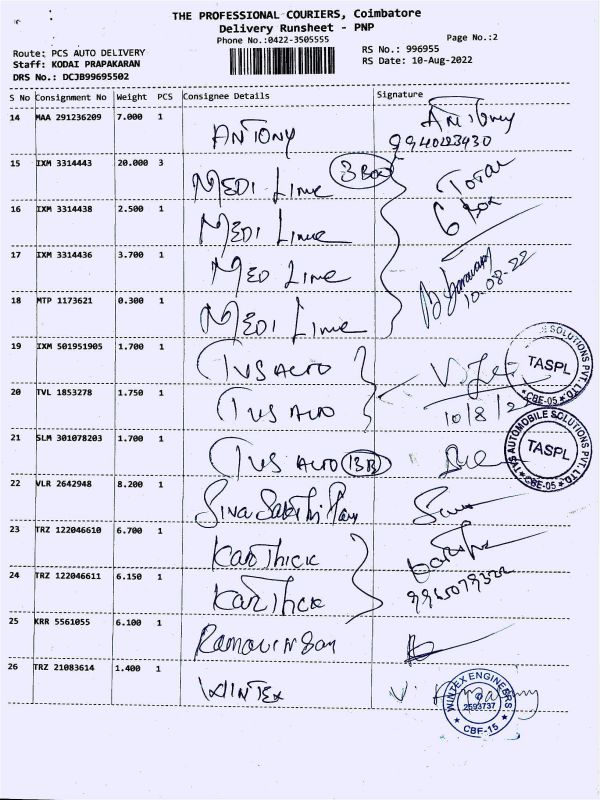 THE PROFESSIONAL COURIERS, Coimbatore
Delivery Runsheet - PNP
Phone No.:0422-3505555
Page No.:2
Route: PCS AUTO DELIVERY
RS No.: 996955
Staff: KODAI PRAPAKARAN
RS Date: 10-Aug-2022
DRS No.: DCJB99695502
S No Consignment No Weight PCS Consignee Details Signature
14 MAA 291236209 7.000 1 ANTONY Antony
15 IXM 3314443 20.000 3 MEDI Line 3 Box Total
16 IXM 3314438 2.500 1 MEDI Line 6 Box
17 IXM 3314436 3.700 1 MED Line
10-08-22
18 MTP 1173621 0.300 1 MEDI Line
19 IXM 501951905 1.700 1 TVS AUTO
20 TVL 1853278 1.750 1 TVS AUTO 10/8/2
TASPL
CBE-05
21 SLM 301078203 1.700 1 TVS AUTO
TVS AUTOMOBILE SOLUTIONS PVT. LTD.
TASPL
CBE-05
22 VLR 2642948 8.200 1 Siva Sakthi
23 TRZ 122046610 6.700 1 Karthick
24 TRZ 122046611 6.150 1 Karthick
25 KRR 5561055 6.100 1
26 TRZ 21083614 1.400 1 WINTEX
WINTEX ENGINEERS
2593737
CBE-15